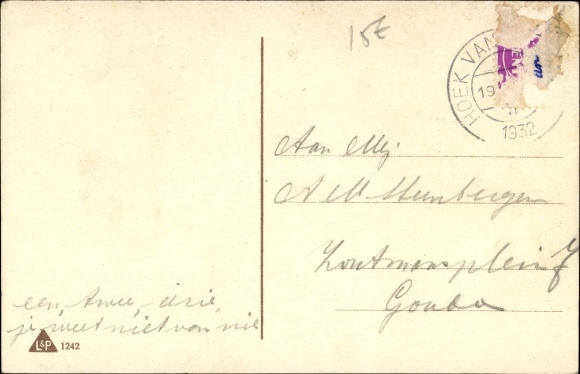 15€
HOEK VAN
19
1932
Aan Mej
A M Steenbergen
Houtmansplein 7
Gouda
een, twee, drie,
je weet niet van wie
L&P 1242